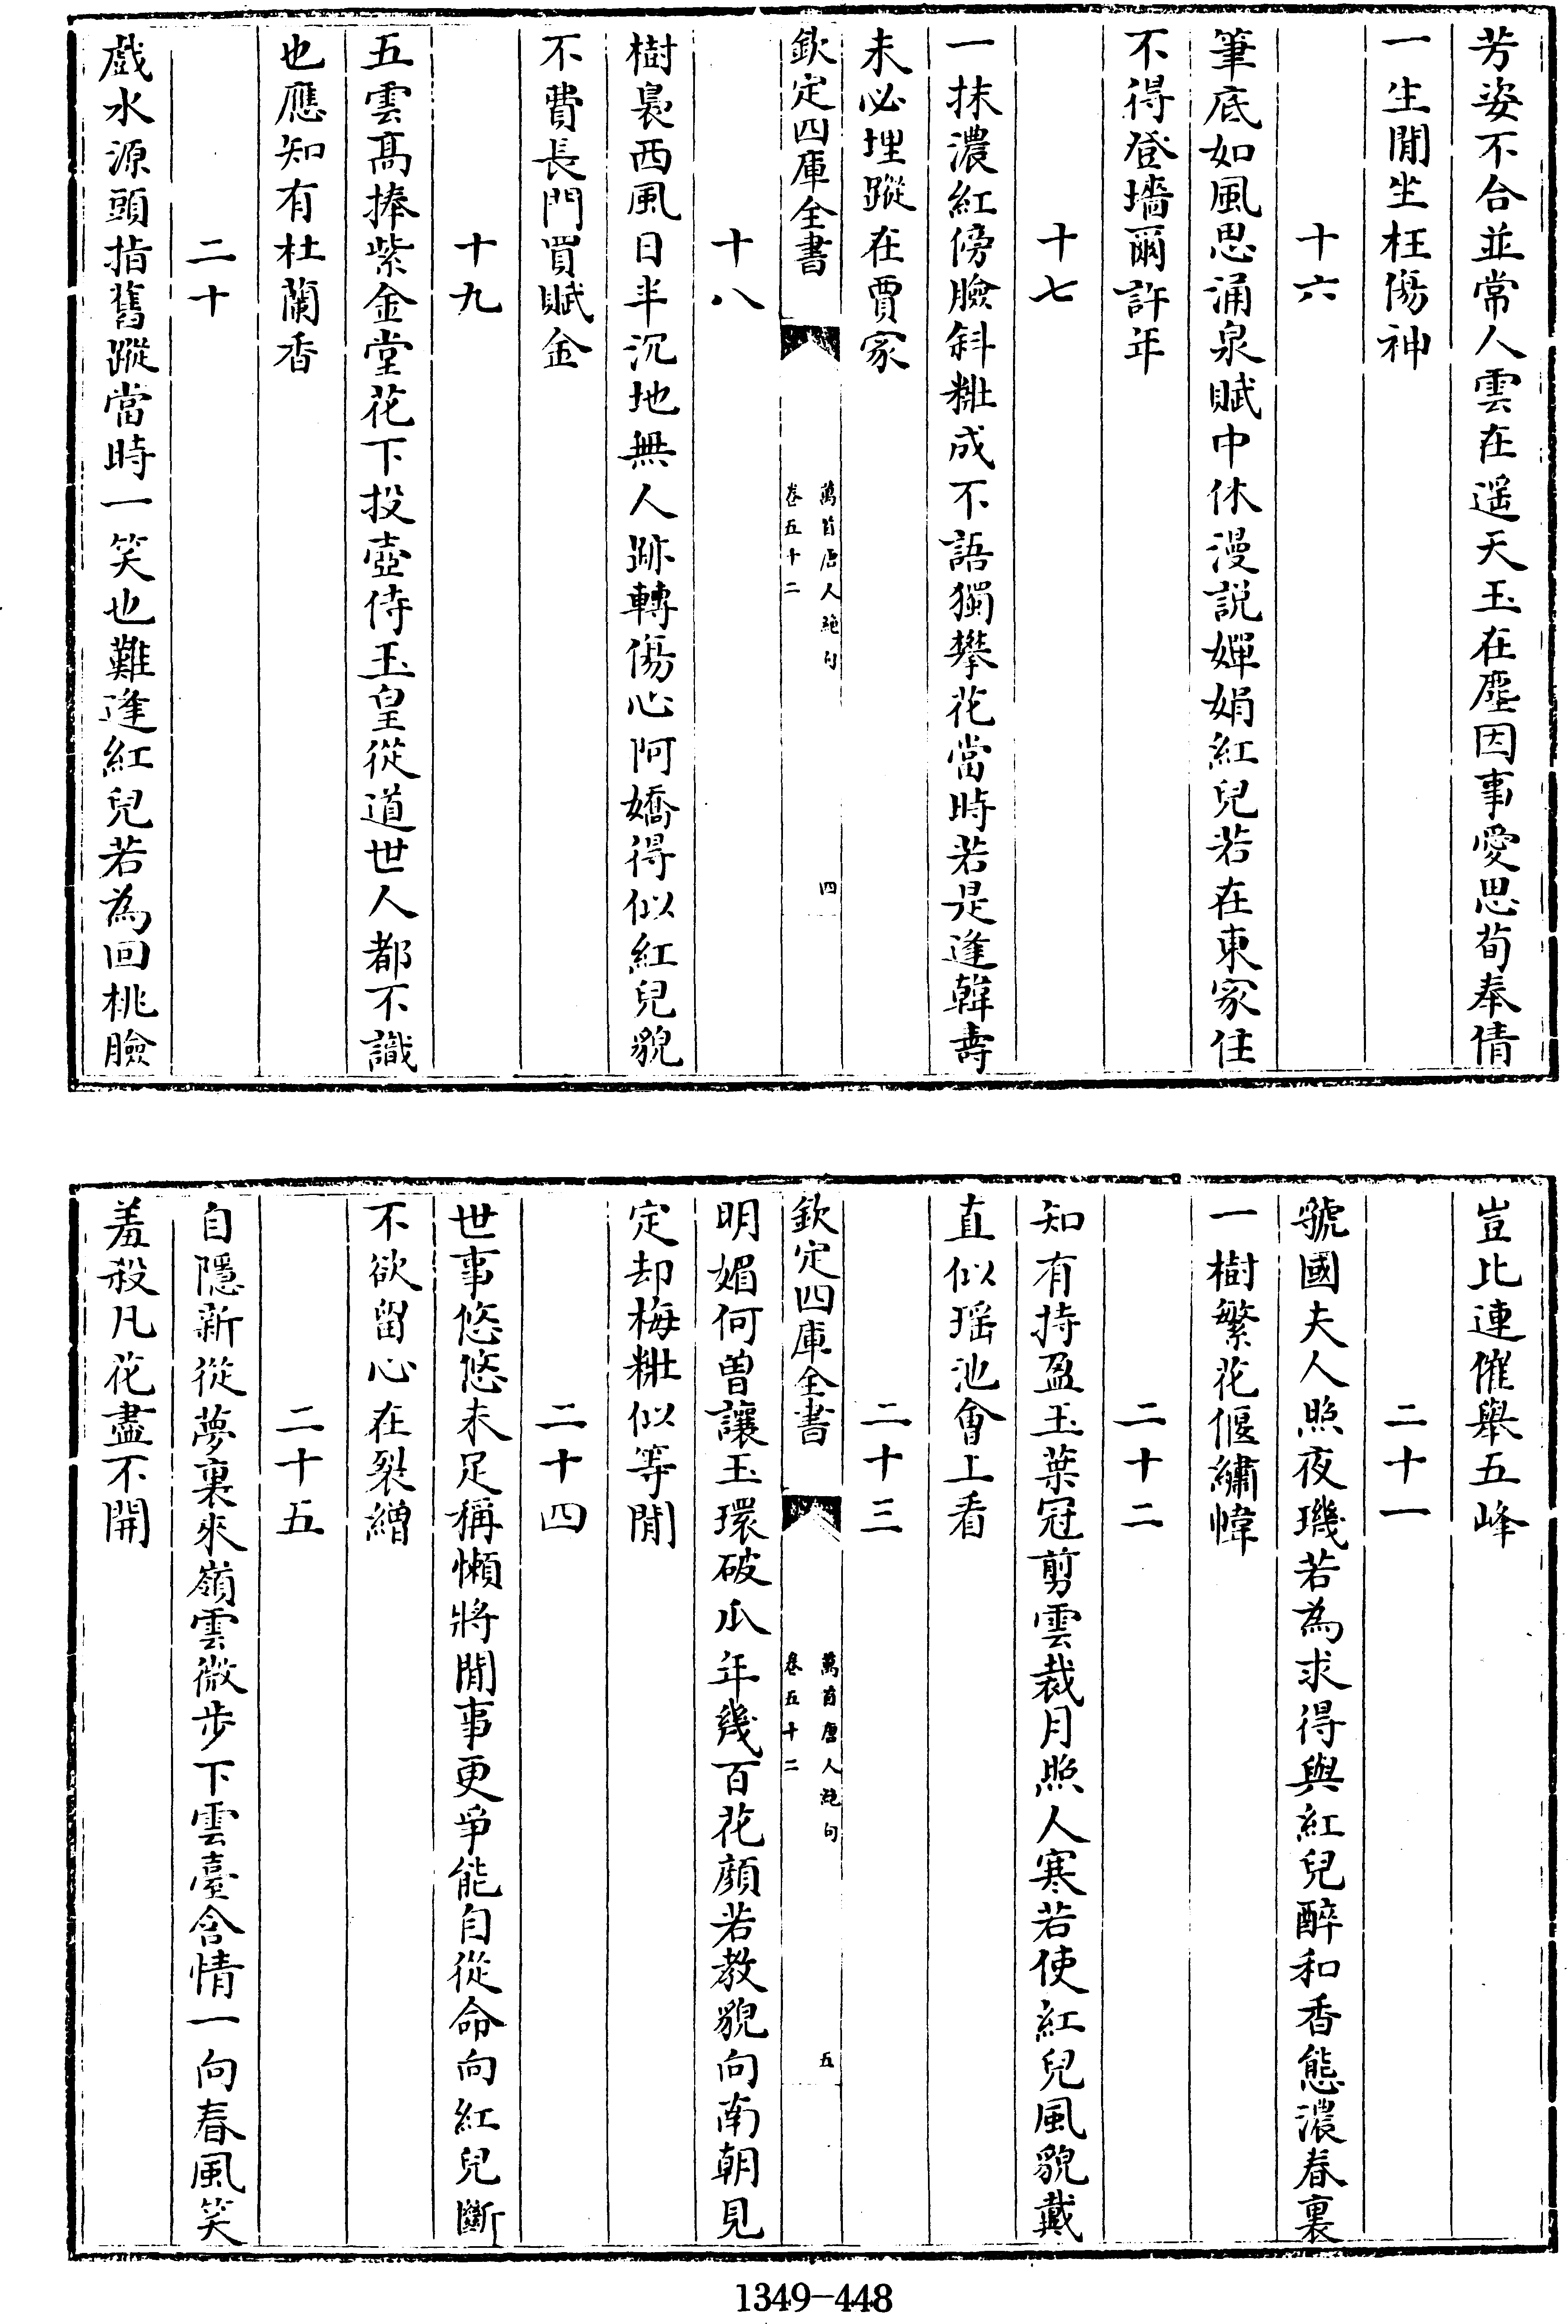 芳姿不合並常人雲在遥天玉在塵因事愛思荀奉倩
一生閒坐枉傷神
十六
筆底如風思涌泉賦中休漫説嬋娟紅兒若在東家住
不得登墻爾許年
十七
一抹濃紅傍臉斜粧成不語獨攀花當時若是逢韓壽
未必埋蹤在賈家
欽定四庫全書
萬首唐人絶句
卷五十二
四
十八
樹裊西風日半沉地無人跡轉傷心阿嬌得似紅兒貌
不費長門買賦金
十九
五雲髙捧紫金堂花下投壺侍玉皇從道世人都不識
也應知有杜蘭香
二十
戲水源頭指舊蹤當時一笑也難逢紅兒若為回桃臉
豈比連催舉五峰
二十一
虢國夫人照夜璣若為求得與紅兒醉和香態濃春裏
一樹繁花偃繡幃
二十二
知有持盈玉葉冠剪雲裁月照人寒若使紅兒風貌戴
直似瑶池會上看
二十三
欽定四庫全書
萬首唐人絶句
卷五十二
五
明媚何曽讓玉環破瓜年幾百花顔若教貌向南朝見
定却梅粧似等閒
二十四
世事悠悠未足稱懶將閒事更爭能自從命向紅兒斷
不欲留心在裂繒
二十五
自隱新從夢裏來嶺雲微步下雲臺含情一向春風笑
羞殺凡花盡不開
1349-448